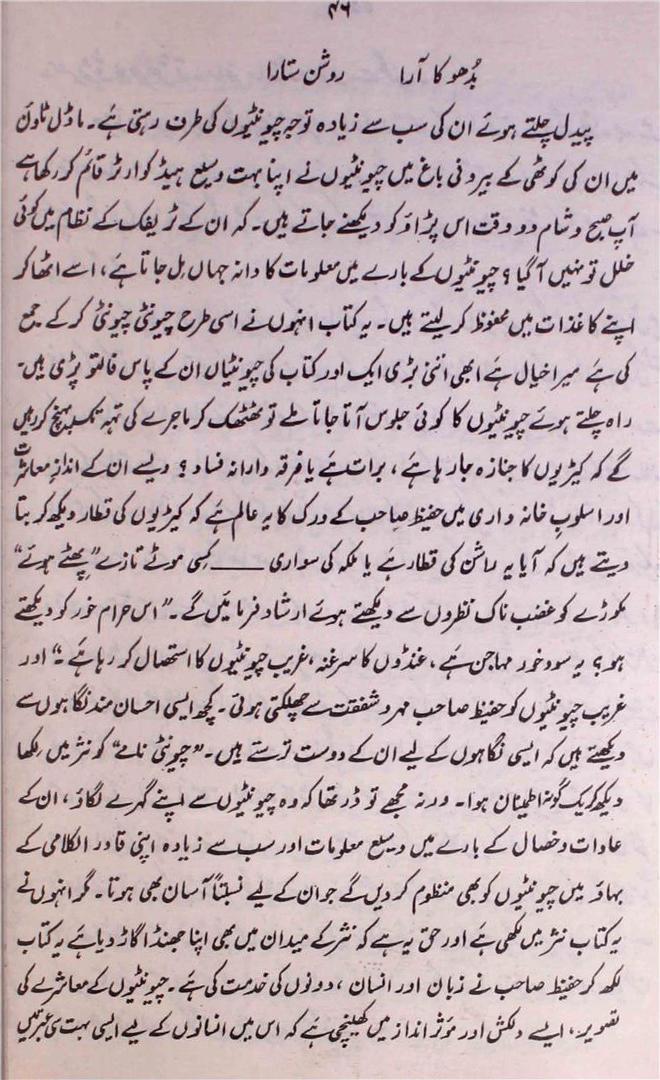 ۴۶
بُدھو کا آرا روشن ستارا
پیدل چلتے ہوئے ان کی سب سے زیادہ توجہ چیونٹیوں کی طرف رہتی ہے۔ ماڈل ٹاؤن
میں ان کی کوٹھی کے بیرونی باغ میں چیونٹیوں نے اپنا بہت وسیع ہیڈ کوارٹر قائم کر رکھا ہے
آپ صبح و شام دو وقت اس پڑاؤ کو دیکھنے جاتے ہیں۔ کہ ان کے ٹریفک کے نظام میں کوئی
خلل تو نہیں آ گیا؟ چیونٹیوں کے بارے میں معلومات کا دانہ جہاں مل جاتا ہے، اسے اٹھا کر
اپنے کاغذات میں محفوظ کر لیتے ہیں۔ یہ کتاب انہوں نے اسی طرح چیونٹی چیونٹی کر کے جمع
کی ہے میرا خیال ہے ابھی اتنی بڑی ایک اور کتاب کی چیونٹیاں ان کے پاس فالتو پڑی ہیں۔
راہ چلتے ہوئے چیونٹیوں کا کوئی جلوس آتا جاتا ملے تو ٹھٹھک کر ماجرے کی تہہ تک پہنچ کر رہیں
گے کہ کیڑیوں کا جنازہ جا رہا ہے، برات ہے یا فرقہ وارانہ فساد؟ ویسے ان کے اندازِ معاشرت
اور اسلوبِ خانہ داری میں حفیظ صاحب کے ورک کا یہ عالم ہے کہ کیڑیوں کی قطار دیکھ کر بتا
دیتے ہیں کہ آیا یہ راشن کی قطار ہے یا ملکہ کی سواری ــــــ کسی موٹے تازے "پھٹے ہوئے"
مکوڑے کو غضب ناک نظروں سے دیکھتے ہوئے ارشاد فرمائیں گے۔ "اس حرام خور کو دیکھتے
ہو؟ یہ سود خور مہاجن ہے، غنڈوں کا سرغنہ، غریب چیونٹیوں کا استحصال کر رہا ہے۔" اور
غریب چیونٹیوں کو حفیظ صاحب مہر و شفقت سے چھلکتی ہوئی۔ کچھ ایسی احسان مند نگاہوں سے
دیکھتے ہیں کہ ایسی نگاہوں کے لیے ان کے دوست ترستے ہیں۔ "چیونٹی نامے" کو نثر میں لکھا
دیکھ کر یک گونہ اطمینان ہوا۔ ورنہ مجھے تو ڈر تھا کہ وہ چیونٹیوں سے اپنے گہرے لگاؤ، ان کے
عادات و خصال کے بارے میں وسیع معلومات اور سب سے زیادہ اپنی قادر الکلامی کے
بہاؤ میں چیونٹیوں کو بھی منظوم کر دیں گے جو ان کے لیے نسبتاً آسان بھی ہوتا۔ مگر انہوں نے
یہ کتاب نثر میں لکھی ہے اور حق یہ ہے کہ نثر کے میدان میں بھی اپنا جھنڈا گاڑ دیا ہے یہ کتاب
لکھ کر حفیظ صاحب نے زبان اور انسان، دونوں کی خدمت کی ہے۔ چیونٹیوں کے معاشرے کی
تصویر، ایسے دلکش اور مؤثر انداز میں کھینچی ہے کہ اس میں انسانوں کے لیے ایسی بہت سی عبرتیں